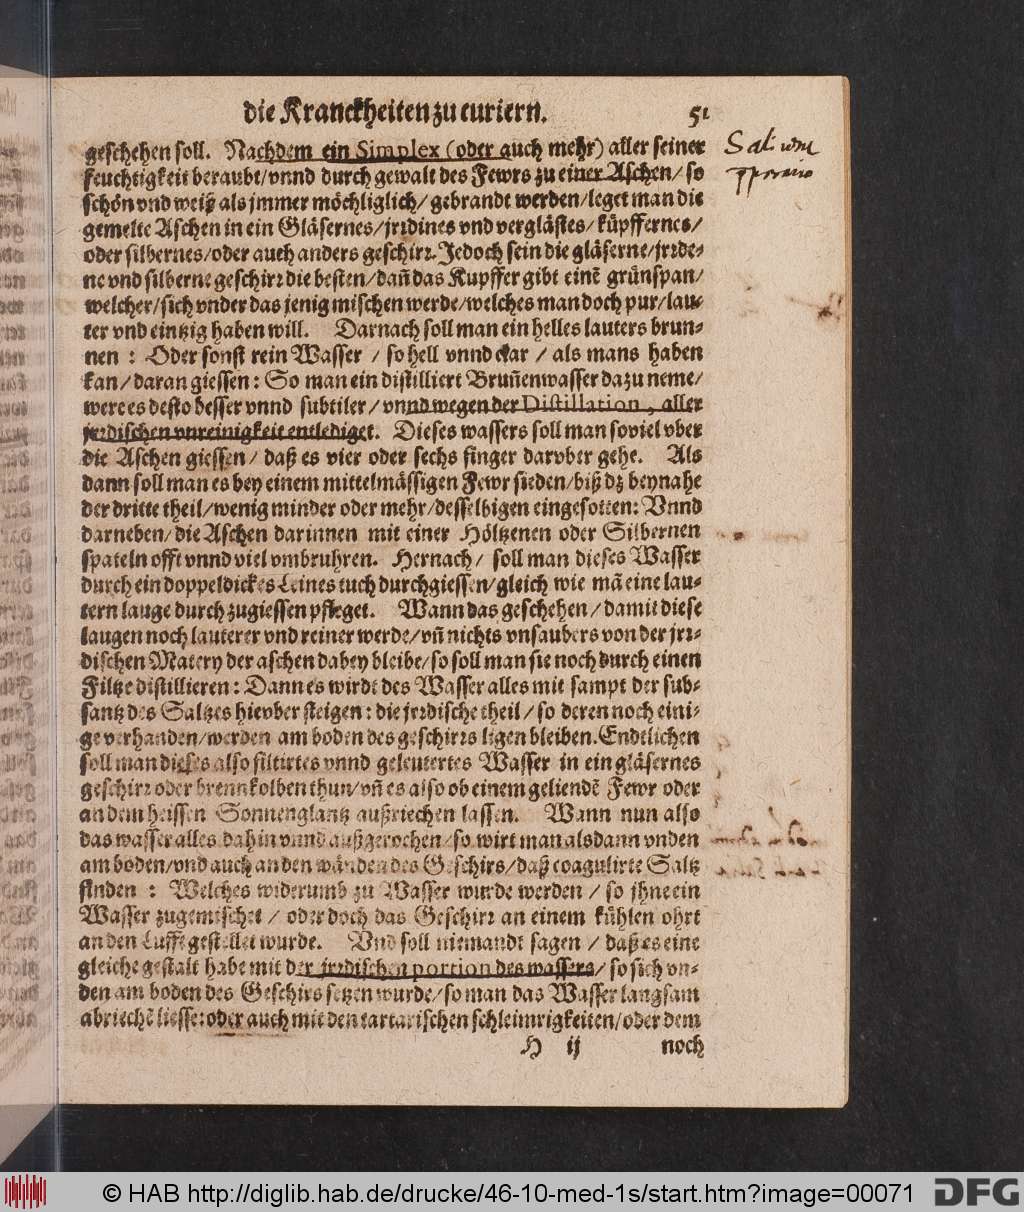 die Kranckheiten zu curiern. 51
geschehen soll. Nachdem ein Simplex (oder auch mehr) aller seiner
feuchtigkeit beraubt/vnnd durch gewalt des Fewrs zu einer Aschen/so
schön vnd weiß als jmmer möchliglich/gebrandt werden/leget man die
gemelte Aschen in ein Gläsernes/jrꝛdines vnd vergläßtes/küpffernes/
oder silbernes/oder auch anders geschirꝛ. Jedoch sein die gläserne/jrꝛde-
ne vnd silberne geschirꝛ die besten/dañ das Kupffer gibt einē grünspan/
welcher/sich vnder das jenig mischen werde/welches man doch pur/lau-
ter vnd eintzig haben will. Darnach soll man ein helles lauters brun-
nen : Oder sonst rein Wasser / so hell vnnd clar / als mans haben
kan/daran giessen: So man ein distilliert Bruñenwasser dazu neme/
were es desto besser vnnd subtiler/vnnd wegen der Distillation, aller
jrꝛdischen vnreinigkeit entlediget. Dieses wassers soll man soviel vber
die Aschen giessen/ daß es vier oder sechs finger darvber gehe. Als
dann soll man es bey einem mittelmässigen Fewr sieden/biß dz beynahe
der dritte theil/wenig minder oder mehr/desselbigen eingesotten: Vnnd
darneben/die Aschen darinnen mit einer Höltzenen oder Silbernen
spateln offt vnnd viel vmbruhren. Hernach/ soll man dieses Wasser
durch ein doppeldickes Leines tuch durchgiessen/gleich wie mā eine lau-
tern lauge durch zugiessen pfleget. Wann das geschehen/damit diese
laugen noch lauterer vnd reiner werde/vñ nichts vnsaubers von der jrꝛ-
dischen Matery der aschen dabey bleibe/so soll man sie noch durch einen
Filtze distillieren: Dann es wirdt des Wasser alles mit sampt der sub-
santz des Saltzes hievber steigen: die jrꝛdische theil/so deren noch eini-
ge verhanden/werden am boden des geschirꝛs ligen bleiben. Endtlichen
soll man dieses also filtirtes vnnd geleutertes Wasser in ein gläsernes
geschirꝛ oder brennkolben thun/vñ es also ob einem geliendē Fewr oder
an dem heissen Sonnenglantz außriechen lassen. Wann nun also
das wasser alles dahin vnnd außgerochen/so wirt man alsdann vnden
am boden/vnd auch an den wänden des Geschirs/daß coagulirte Saltz
finden : Welches widerumb zu Wasser wurde werden / so jhne ein
Wasser zugemischet / oder doch das Geschirꝛ an einem kühlen ohrt
an den Lufft gestellet wurde. Vnd soll niemandt sagen / daß es eine
gleiche gestalt habe mit der jrꝛdischen portion des wassers/so sich vn-
den am boden des Geschirs setzen wurde/so man das Wasser langsam
abriechē liesse: oder auch mit den tartarischen schleimrigkeiten/oder dem
H ij noch
© HAB http://diglib.hab.de/drucke/46-10-med-1s/start.htm?image=00071 DFG